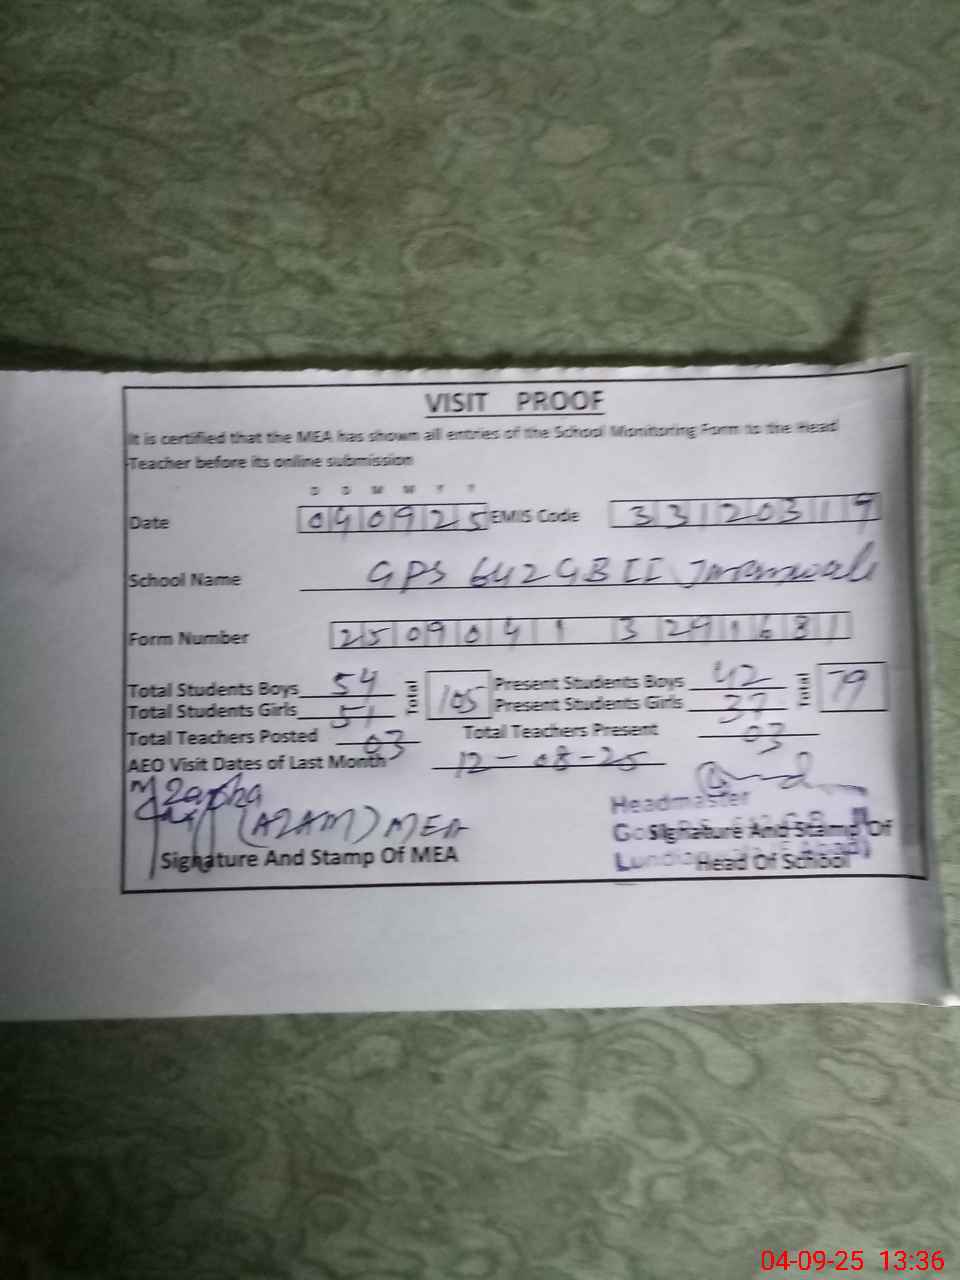 VISIT PROOF
It is certified that the MEA has shown all entries of the School Monitoring Form to the Head
Teacher before its online submission
D D M M Y Y
Date 040925 EMIS Code 33120319
School Name GPS 642 GB II
Form Number 2509041 3291631
Total Students Boys 54 Total 105 Present Students Boys 42 Total 79
Total Students Girls 51 Present Students Girls 37
Total Teachers Posted 03 Total Teachers Present 03
AEO Visit Dates of Last Month 12-08-25
(AZAM) MEA
Headmaster
Signature And Stamp Of
Signature And Stamp Of MEA
Head Of School
04-09-25 13:36